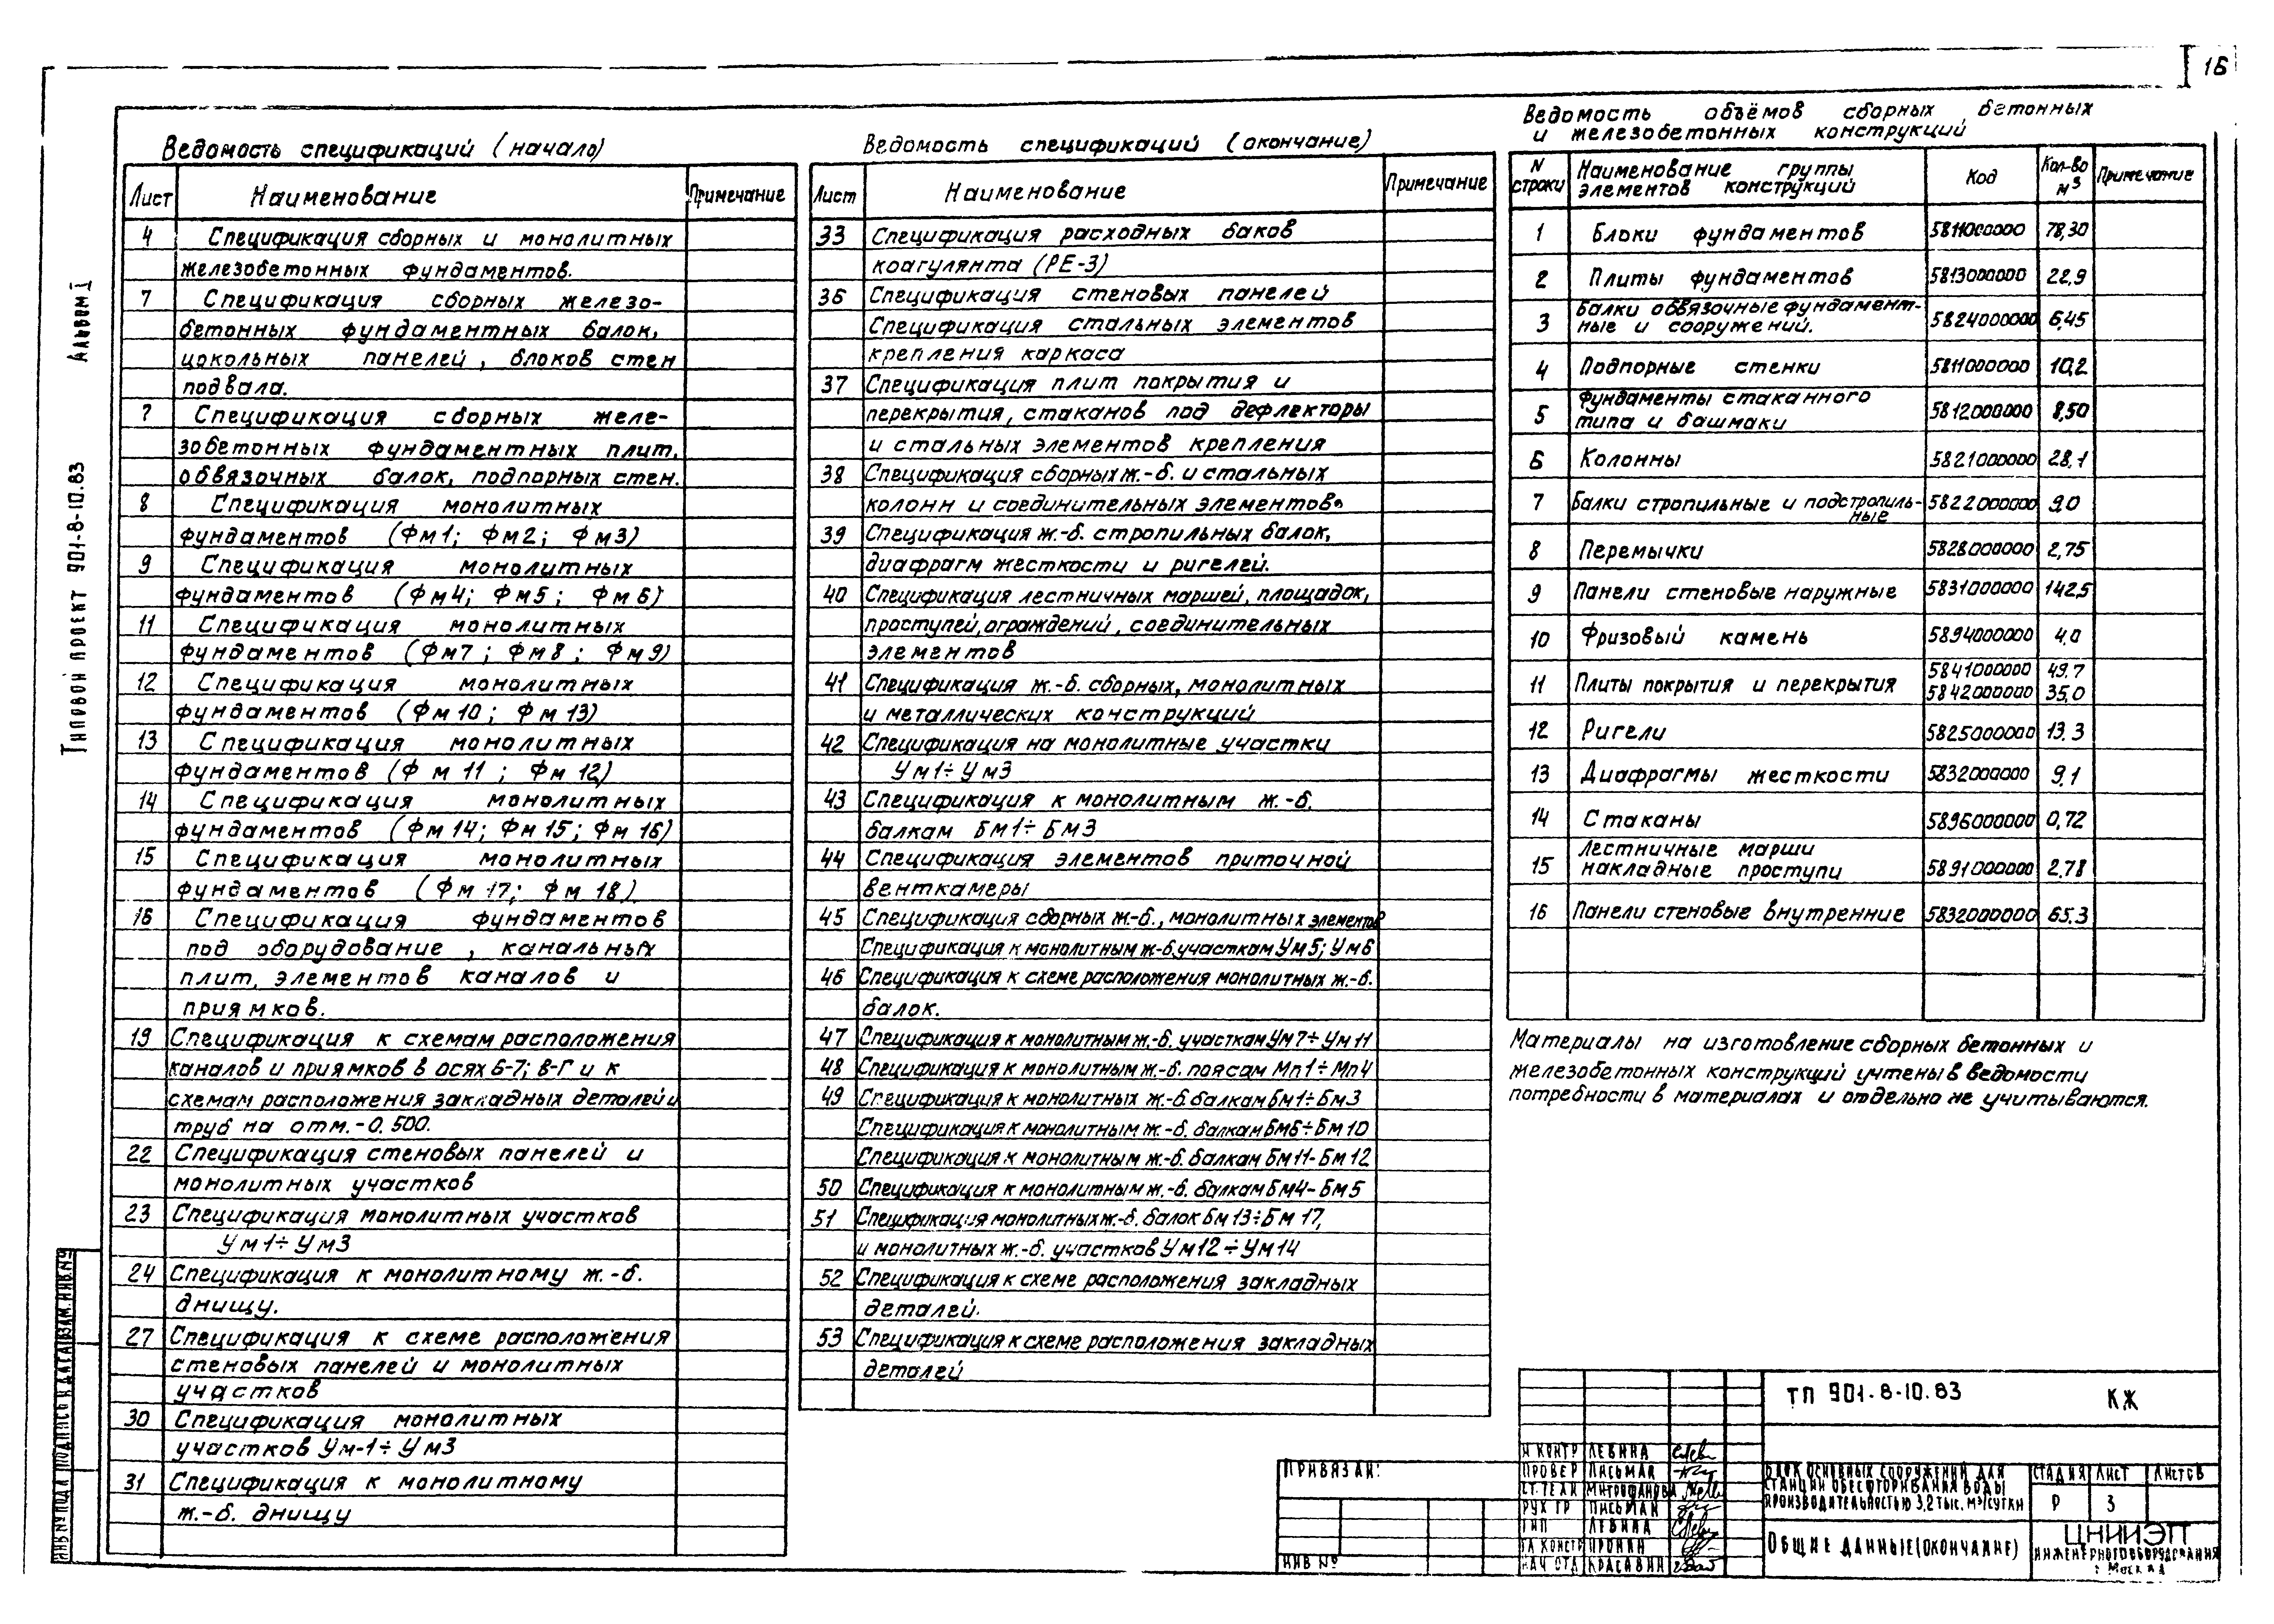 16
Альбом I
Типовой проект 901-8-10.83
Ведомость спецификаций (начало)
Лист Наименование Примечание
4 Спецификация сборных и монолитных
железобетонных фундаментов.
7 Спецификация сборных железо-
бетонных фундаментных балок,
цокольных панелей, блоков стен
подвала.
7 Спецификация сборных желе-
зобетонных фундаментных плит,
обвязочных балок, подпорных стен.
8 Спецификация монолитных
фундаментов (Фм1; Фм2; Фм3)
9 Спецификация монолитных
фундаментов (Фм4; Фм5; Фм6)
11 Спецификация монолитных
фундаментов (Фм7; Фм8; Фм9)
12 Спецификация монолитных
фундаментов (Фм10; Фм13)
13 Спецификация монолитных
фундаментов (Фм11; Фм12)
14 Спецификация монолитных
фундаментов (Фм14; Фм15; Фм16)
15 Спецификация монолитных
фундаментов (Фм17; Фм18)
16 Спецификация фундаментов
под оборудование, канальных
плит, элементов каналов и
приямков.
19 Спецификация к схемам расположения
каналов и приямков в осях 6-7; В-Г и к
схемам расположения закладных деталей и
труб на отм.-0.500.
22 Спецификация стеновых панелей и
монолитных участков
23 Спецификация монолитных участков
Ум1÷Ум3
24 Спецификация к монолитному ж.-б.
днищу.
27 Спецификация к схеме расположения
стеновых панелей и монолитных
участков
30 Спецификация монолитных
участков Ум-1÷Ум3
31 Спецификация к монолитному
ж.-б. днищу
Ведомость спецификаций (окончание)
Лист Наименование Примечание
33 Спецификация расходных баков
коагулянта (РЕ-3)
36 Спецификация стеновых панелей
Спецификация стальных элементов
крепления каркаса
37 Спецификация плит покрытия и
перекрытия, стаканов под дефлекторы
и стальных элементов крепления
38 Спецификация сборных ж.-б. и стальных
колонн и соединительных элементов
39 Спецификация ж.-б. стропильных балок,
диафрагм жесткости и ригелей.
40 Спецификация лестничных маршей, площадок,
проступей, ограждений, соединительных
элементов
41 Спецификация ж.-б. сборных, монолитных
и металлических конструкций
42 Спецификация на монолитные участки
Ум1÷Ум3
43 Спецификация к монолитным ж.-б.
балкам Бм1÷Бм3
44 Спецификация элементов приточной
венткамеры
45 Спецификация сборных ж.-б., монолитных элементов
Спецификация к монолитным ж.-б. участкам Ум5; Ум6
46 Спецификация к схеме расположения монолитных ж.-б.
балок.
47 Спецификация к монолитным ж.-б. участкам Ум7÷Ум11
48 Спецификация к монолитным ж.-б. поясам Мп1÷Мп4
49 Спецификация к монолитных ж.-б. балкам Бм1÷Бм3
Спецификация к монолитным ж.-б. балкам Бм6÷Бм10
Спецификация к монолитным ж.-б. балкам Бм11-Бм12
50 Спецификация к монолитным ж.-б. балкам Бм4-Бм5
51 Спецификация монолитных ж.-б. балок Бм13÷Бм17,
и монолитных ж.-б. участков Ум12÷Ум14
52 Спецификация к схеме расположения закладных
деталей.
53 Спецификация к схеме расположения закладных
деталей
Ведомость объёмов сборных, бетонных
и железобетонных конструкций
N строки Наименование группы элементов конструкций Код Кол-во м³ Примечание
1 Блоки фундаментов 5811000000 78,30
2 Плиты фундаментов 5813000000 22,9
3 Балки обвязочные фундамент-
ные и сооружений. 5824000000 6,45
4 Подпорные стенки 5811000000 10,2
5 Фундаменты стаканного
типа и башмаки 5812000000 8,50
6 Колонны 5821000000 28,1
7 Балки стропильные и подстропиль-
ные 5822000000 9,0
8 Перемычки 5828000000 2,75
9 Панели стеновые наружные 5831000000 142,5
10 Фризовый камень 5894000000 4,0
11 Плиты покрытия и перекрытия 5841000000 49.7
5842000000 35.0
12 Ригели 5825000000 13.3
13 Диафрагмы жесткости 5832000000 9.1
14 Стаканы 5896000000 0,72
15 Лестничные марши
накладные проступи 5891000000 2.78
16 Панели стеновые внутренние 5832000000 65.3
Материалы на изготовление сборных бетонных и
железобетонных конструкций учтены в ведомости
потребности в материалах и отдельно не учитываются.
ТП 901-8-10.83 КЖ
Н КОНТР ЛЕВИНА
ПРОВЕР ПИСЬМАН
СТ.ТЕХН МИТРОФАНОВА
РУК ГР ПИСЬМАН
ГИП ЛЕВИНА
ГА КОНСТР ПРОНИН
НАЧ ОТД КРАСАВИН
БЛОК ОСНОВНЫХ СООРУЖЕНИЙ ДЛЯ
СТАНЦИИ ОБЕСФТОРИВАНИЯ ВОДЫ
ПРОИЗВОДИТЕЛЬНОСТЬЮ 3,2 ТЫС. М³/СУТКИ
СТАДИЯ ЛИСТ ЛИСТОВ
Р 3
ОБЩИЕ ДАННЫЕ (ОКОНЧАНИЕ)
ЦНИИЭП
ИНЖЕНЕРНОГО ОБОРУДОВАНИЯ
г Москва
ПРИВЯЗАН:
ИНВ №
ИНВ № ПОДЛ ПОДПИСЬ И ДАТА ВЗАМ. ИНВ №